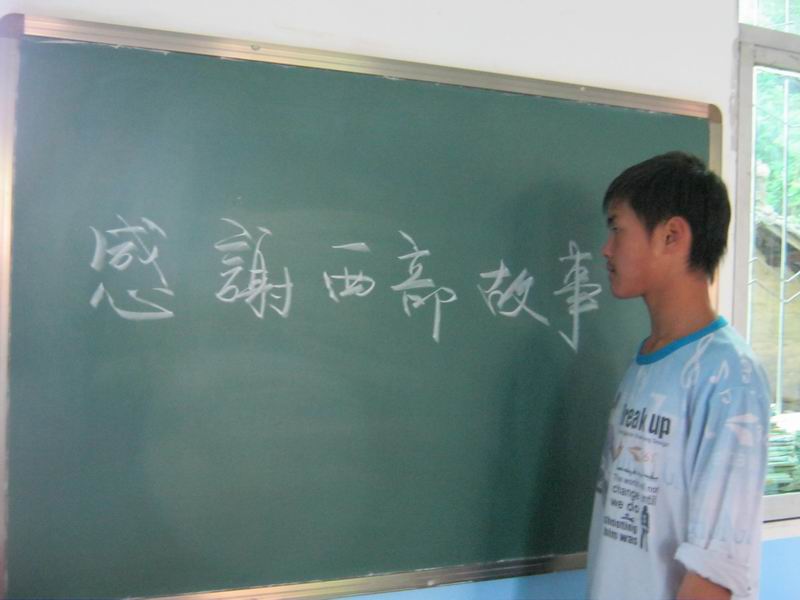 感謝西部故事
Break up
The world is not
change until
we do
shooting
him was